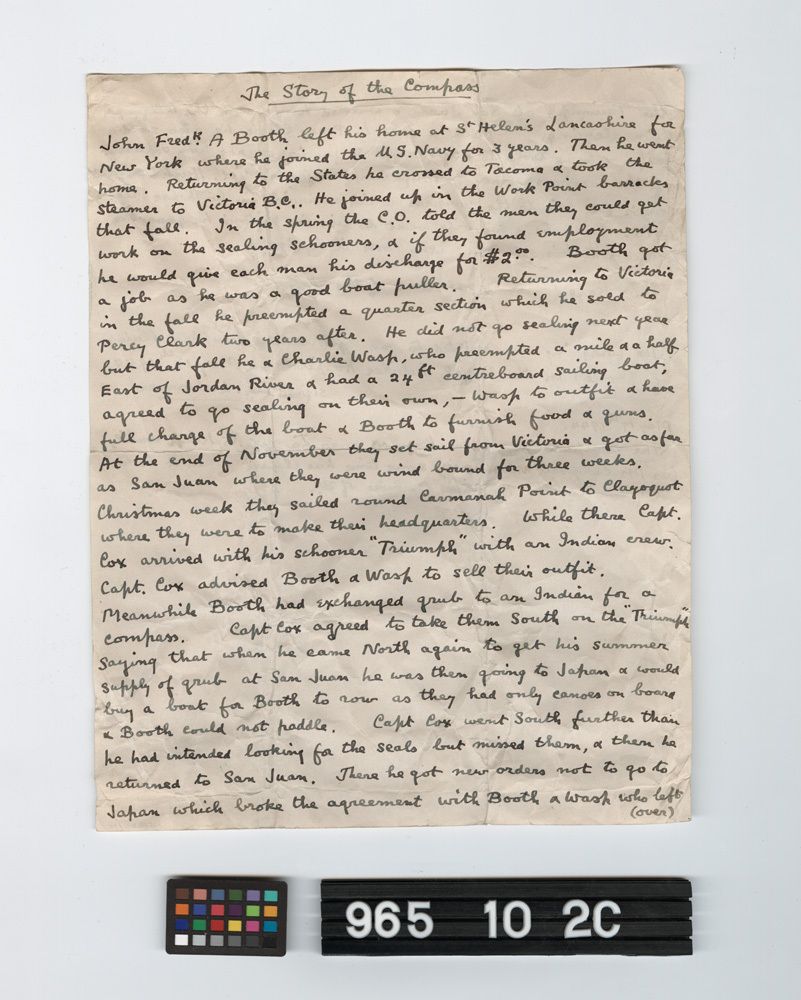 The Story of the Compass
John Fredk. A Booth left his home at St Helen's Lancashire for
New York where he joined the U.S. Navy for 3 years. Then he went
home. Returning to the States he crossed to Tacoma & took the
steamer to Victoria B.C.. He joined up in the Work Point barracks
that fall. In the spring the C.O. told the men they could get
work on the sealing schooners, & if they found employment
he would give each man his discharge for $2.00. Booth got
a job as he was a good boat puller. Returning to Victoria
in the fall he preempted a quarter section which he sold to
Percy Clark two years after. He did not go sealing next year
but that fall he & Charlie Wasp, who preempted a mile & a half
East of Jordan River & had a 24 ft centreboard sailing boat,
agreed to go sealing on their own, – Wasp to outfit & have
full charge of the boat & Booth to furnish food & guns.
At the end of November they set sail from Victoria & got as far
as San Juan where they were wind bound for three weeks.
Christmas week they sailed round Carmanah Point to Clayoquot
where they were to make their headquarters. While there Capt.
Cox arrived with his schooner "Triumph" with an Indian crew.
Capt. Cox advised Booth & Wasp to sell their outfit.
Meanwhile Booth had exchanged grub to an Indian for a
compass. Capt Cox agreed to take them South on the "Triumph"
saying that when he came North again to get his summer
supply of grub at San Juan he was then going to Japan & would
buy a boat for Booth to row as they had only canoes on board
& Booth could not paddle. Capt Cox went South further than
he had intended looking for the seals but missed them, & then he
returned to San Juan. There he got new orders not to go to
Japan which broke the agreement with Booth & Wasp who left
(over)
965 10 2C